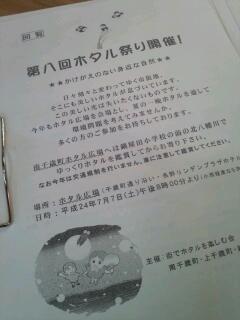 回覧
第八回ホタル祭り開催！
★★かけがえのない身近な自然★★
日々刻々と変わってゆく市街地。
そこにも美しいホタルが息づいています。
この美しい光は失いたくないものです。
今年もホタル広場を会場として、夏の一夜ホタルを通して
環境問題を考えてみませんか。
多くの方のご参加をお待ちしております。
南千歳町ホタル広場へは鍋屋田小学校の前の北八幡川で
ゆっくりホタルを鑑賞してからお寄り下さい。
なお今年は交通規制を行いません。車に注意して鑑賞してください。
場所：ホタル広場（千歳町通り沿い・長野リンデンプラザホテル
日時：平成24年7月7日(土)午後8時00分より
主催：街でホタルを楽しむ会
南千歳町・上千歳町